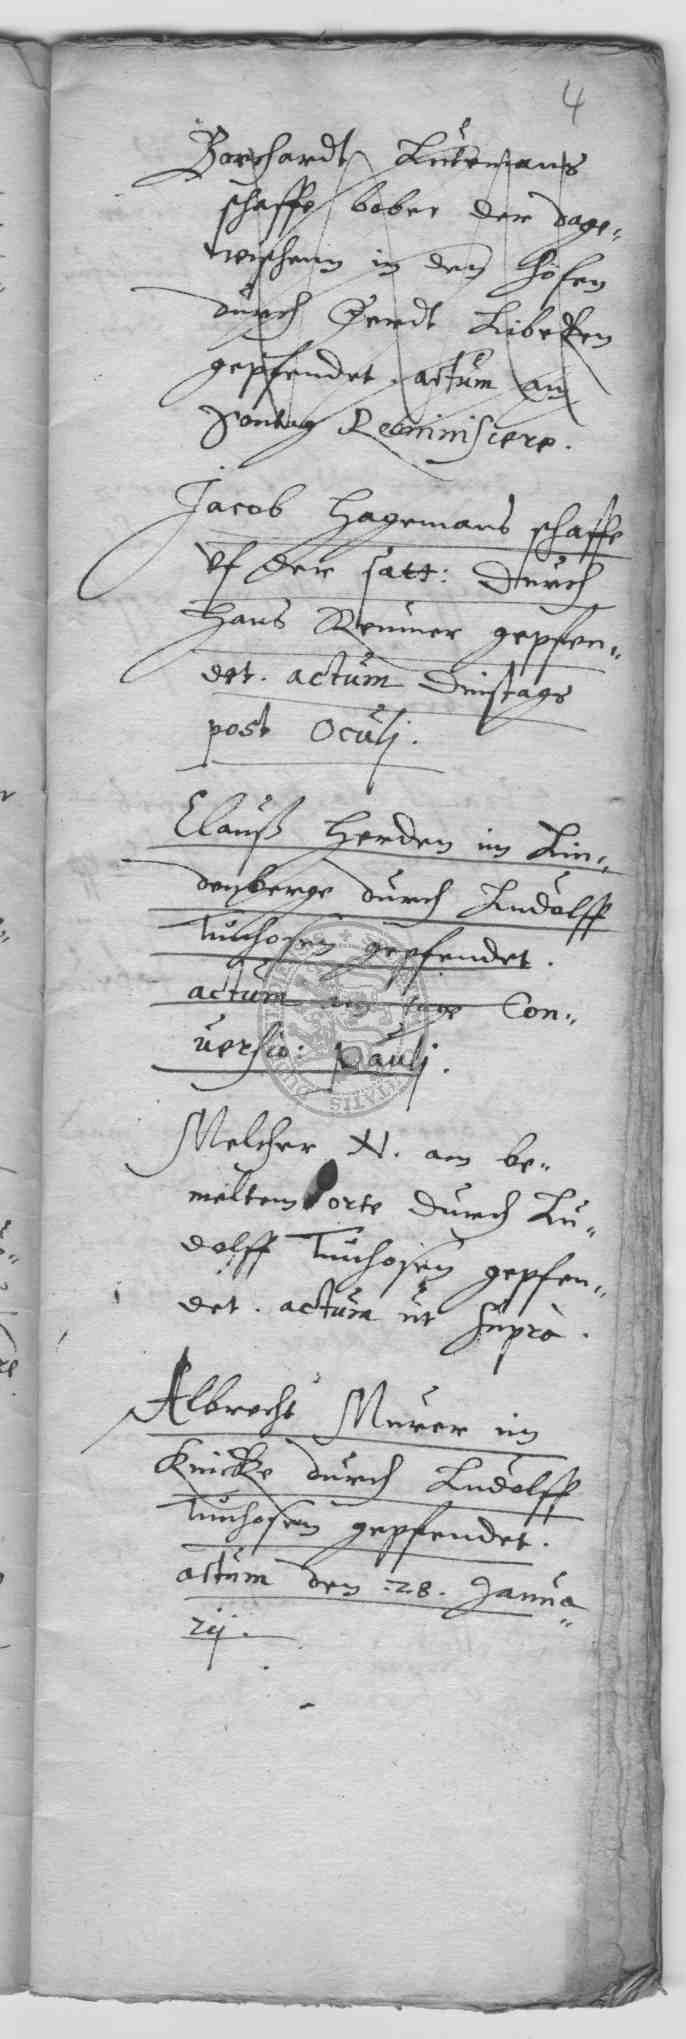 4
Borchardt Lüdemans
schaffe bober der dage„
wischenn in den höfen
durch Gerdt Libecken
gepfendet. actum am
Sontag Reminiscere.
Jacob Hagemans schaffe
vf der satt: durch
Hans Remmer gepfen„
det. actum Dinstags
post Oculj.
Clauß Herden im Lin„
denberge durch Ludolff
Tunhosen gepfendet.
actum am tage Con„
uersio: Paulj.
Melcher N. am be„
meltem orte durch Lu„
dolff Tunhosen gepfen„
det. actum ut suprà.
Albrecht Murer im
Knicke durch Ludolff
Tunhosen gepfendet.
actum den .28. Janua„
rij.